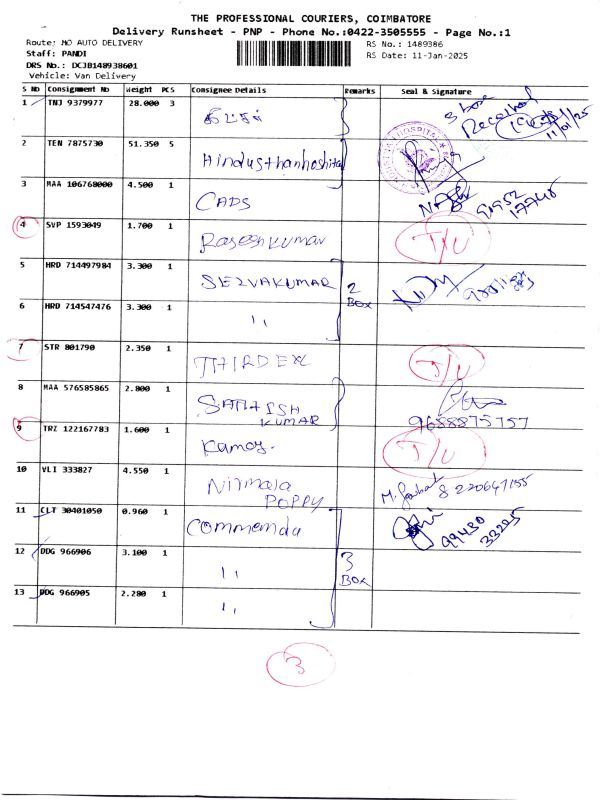 THE PROFESSIONAL COURIERS, COIMBATORE
Delivery Runsheet - PNP - Phone No.:0422-3505555 - Page No.:1
Route: MO AUTO DELIVERY
RS No.: 1489386
Staff: PANDI
RS Date: 11-Jan-2025
DRS No.: DCJB148938601
Vehicle: Van Delivery
S No Consignment No Weight PCS Consignee Details Remarks Seal & Signature
1 TNJ 9379977 28.000 3
3 box Received
11/01/25
2 TEN 7875730 51.350 5 Hindusthanhospital
3 MAA 106768000 4.500 1 CADS
91952 17748
4 SVP 1593049 1.700 1 Raseshkumar T/U
5 HRD 714497984 3.300 1 SELVAKUMAR 2 BOX
6 HRD 714547476 3.300 1 "
7 STR 801790 2.350 1 THIRD EXE T/U
8 MAA 576585865 2.800 1 SATHISH KUMAR 9688875757
9 TRZ 122167783 1.600 1 Kamoj. T/U
10 VLI 333827 4.550 1 Nirmala POPPY
11 CLT 30401050 0.960 1 Commanda 99430 33225
12 DDG 966906 3.100 1 " 3 BOX
13 DDG 966905 2.280 1 "
3